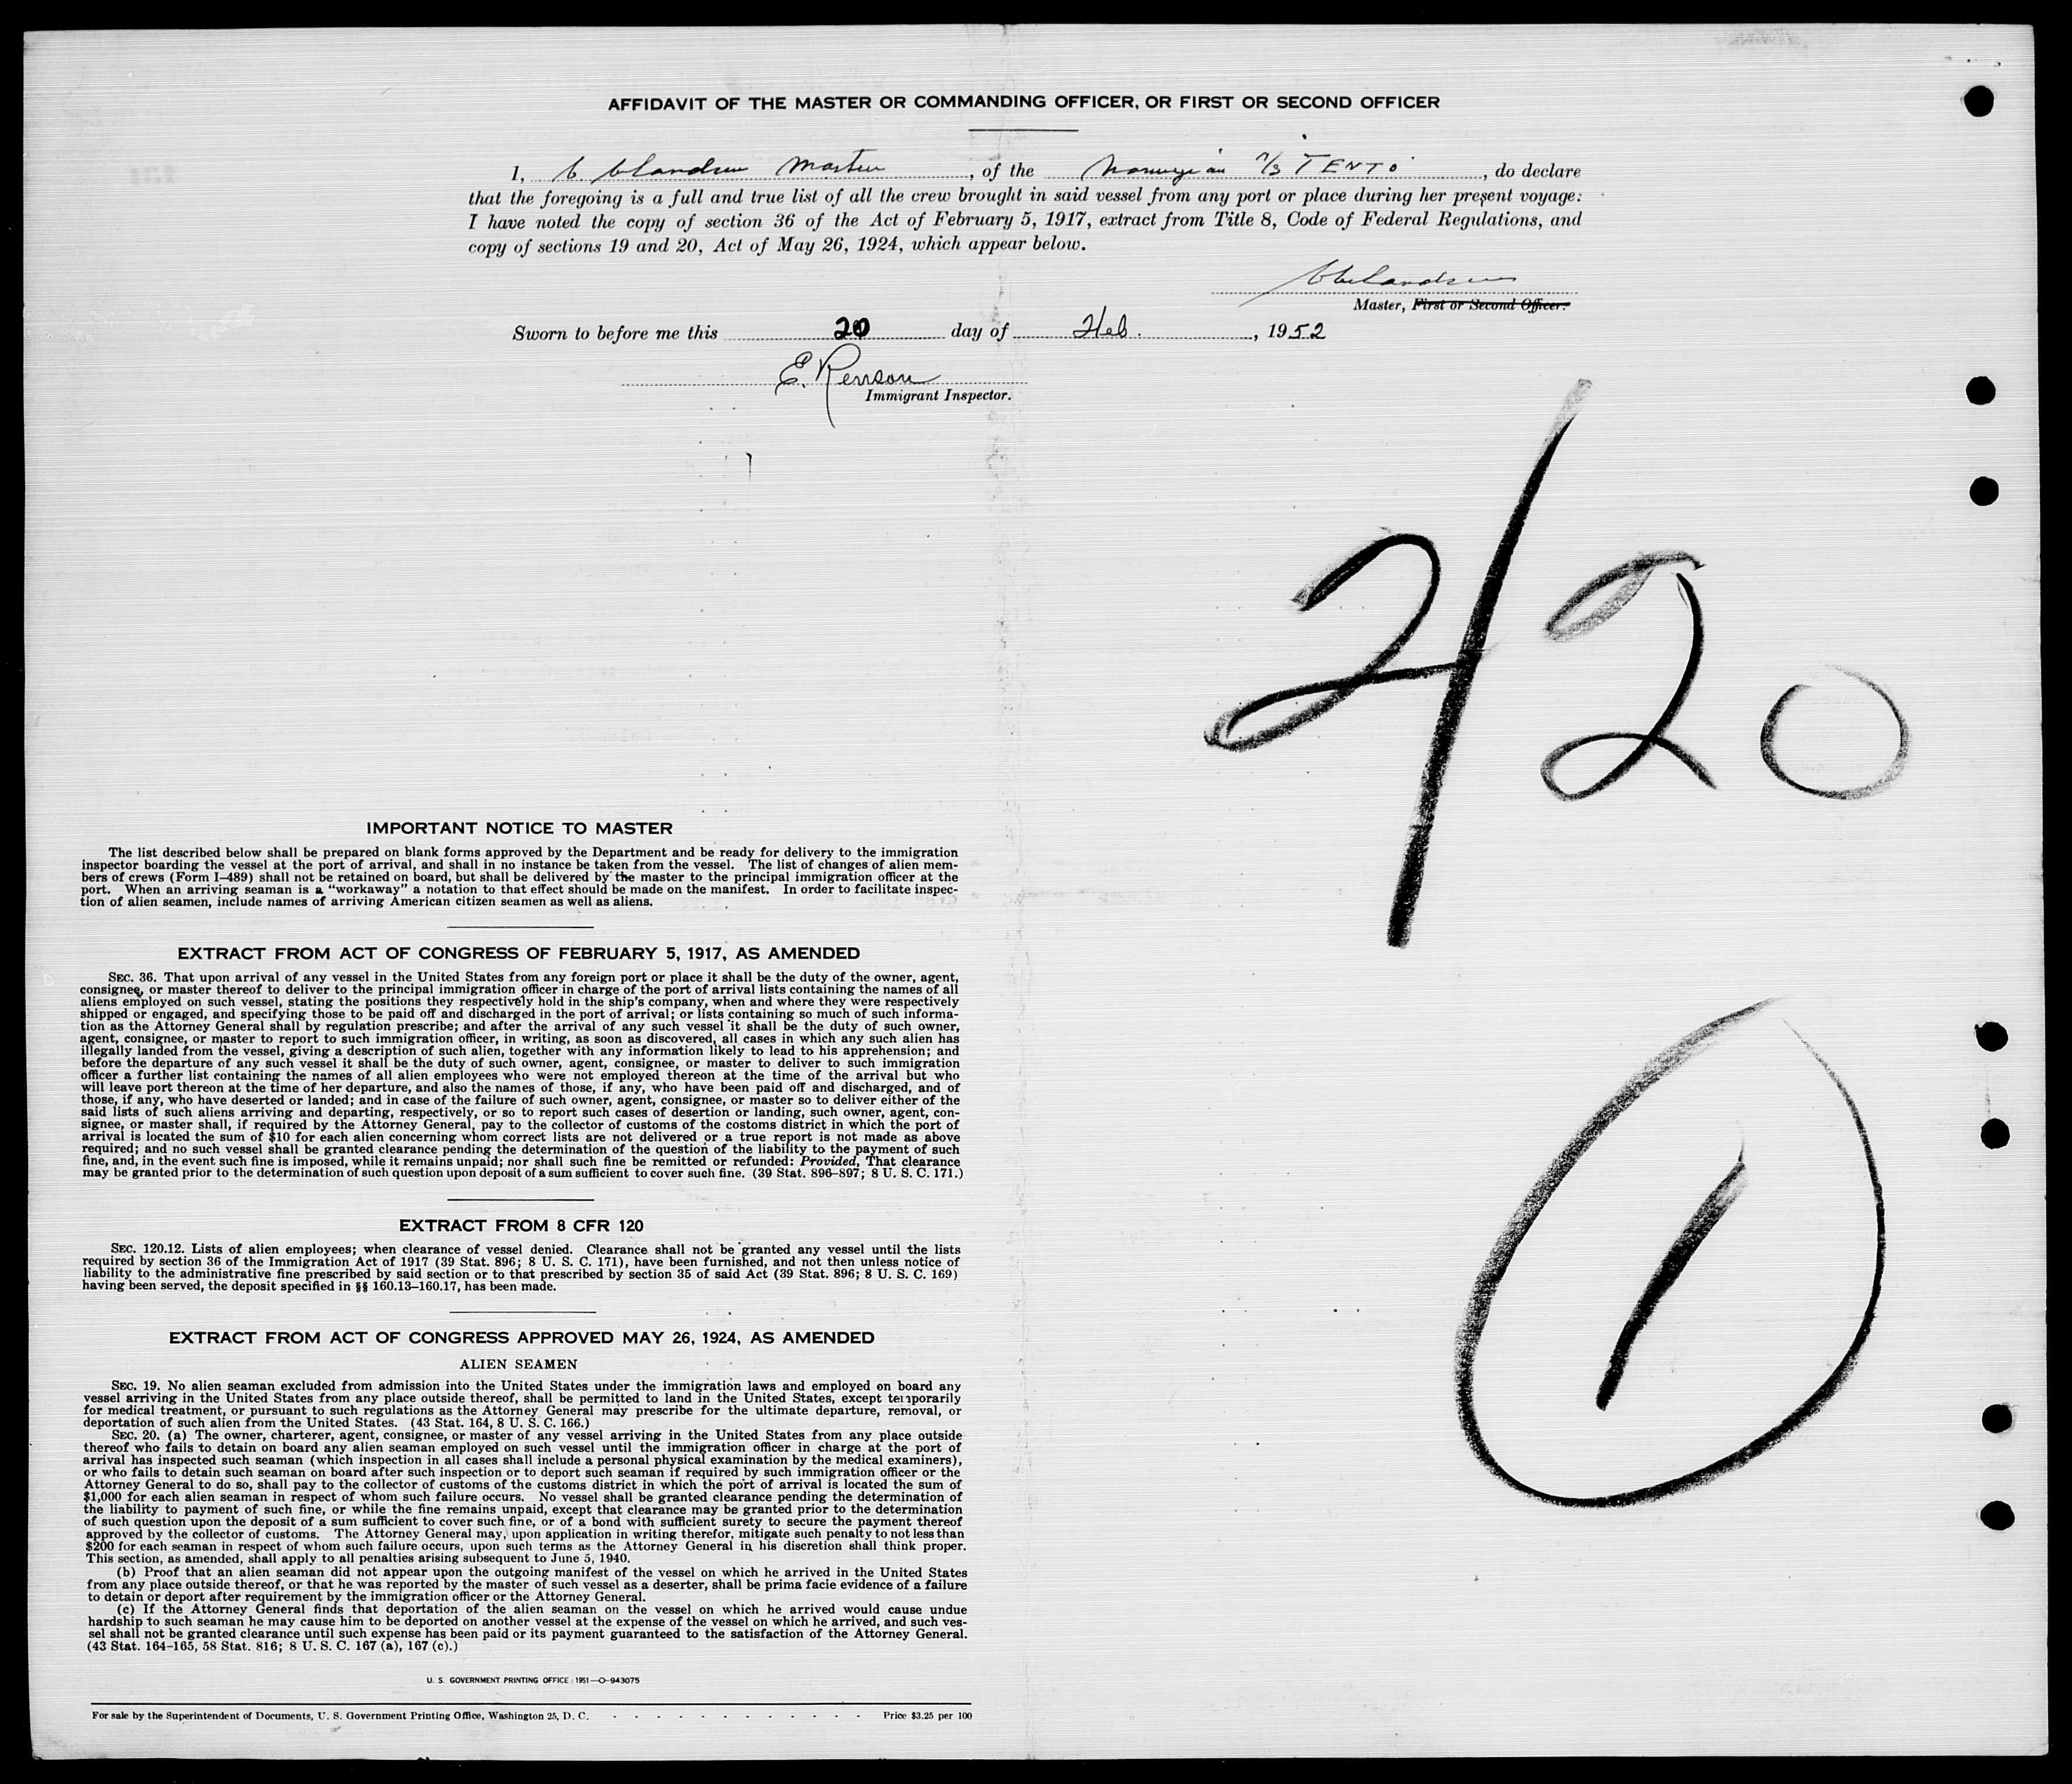 AFFIDAVIT OF THE MASTER OR COMMANDING OFFICER, OR FIRST OR SECOND OFFICER
I, Master, of the Norwegian M/S TENTO, do declare
that the foregoing is a full and true list of all the crew brought in said vessel from any port or place during her present voyage:
I have noted the copy of section 36 of the Act of February 5, 1917, extract from Title 8, Code of Federal Regulations, and
copy of sections 19 and 20, Act of May 26, 1924, which appear below.
Master, First or Second Officer.
Sworn to before me this 20 day of Feb., 1952
E. Renson
Immigrant Inspector.
2/20
1
IMPORTANT NOTICE TO MASTER
The list described below shall be prepared on blank forms approved by the Department and be ready for delivery to the immigration
inspector boarding the vessel at the port of arrival, and shall in no instance be taken from the vessel. The list of changes of alien mem-
bers of crews (Form I-489) shall not be retained on board, but shall be delivered by the master to the principal immigration officer at the
port. When an arriving seaman is a "workaway" a notation to that effect should be made on the manifest. In order to facilitate inspec-
tion of alien seamen, include names of arriving American citizen seamen as well as aliens.
EXTRACT FROM ACT OF CONGRESS OF FEBRUARY 5, 1917, AS AMENDED
SEC. 36. That upon arrival of any vessel in the United States from any foreign port or place it shall be the duty of the owner, agent,
consignee, or master thereof to deliver to the principal immigration officer in charge of the port of arrival lists containing the names of all
aliens employed on such vessel, stating the positions they respectively hold in the ship's company, when and where they were respectively
shipped or engaged, and specifying those to be paid off and discharged in the port of arrival; or lists containing so much of such informa-
tion as the Attorney General shall by regulation prescribe; and after the arrival of any such vessel it shall be the duty of such owner,
agent, consignee, or master to report to such immigration officer, in writing, as soon as discovered, all cases in which any such alien has
illegally landed from the vessel, giving a description of such alien, together with any information likely to lead to his apprehension; and
before the departure of any such vessel it shall be the duty of such owner, agent, consignee, or master to deliver to such immigration
officer a further list containing the names of all alien employees who were not employed thereon at the time of the arrival but who
will leave port thereon at the time of her departure, and also the names of those, if any, who have been paid off and discharged, and of
those, if any, who have deserted or landed; and in case of the failure of such owner, agent, consignee, or master so to deliver either of the
said lists of such aliens arriving and departing, respectively, or so to report such cases of desertion or landing, such owner, agent, con-
signee, or master shall, if required by the Attorney General, pay to the collector of customs of the costoms district in which the port of
arrival is located the sum of $10 for each alien concerning whom correct lists are not delivered or a true report is not made as above
required; and no such vessel shall be granted clearance pending the determination of the question of the liability to the payment of such
fine, and, in the event such fine is imposed, while it remains unpaid; nor shall such fine be remitted or refunded: Provided, That clearance
may be granted prior to the determination of such question upon deposit of a sum sufficient to cover such fine. (39 Stat. 896-897; 8 U. S. C. 171.)
EXTRACT FROM 8 CFR 120
SEC. 120.12. Lists of alien employees; when clearance of vessel denied. Clearance shall not be granted any vessel until the lists
required by section 36 of the Immigration Act of 1917 (39 Stat. 896; 8 U. S. C. 171), have been furnished, and not then unless notice of
liability to the administrative fine prescribed by said section or to that prescribed by section 35 of said Act (39 Stat. 896; 8 U. S. C. 169)
having been served, the deposit specified in §§ 160.13-160.17, has been made.
EXTRACT FROM ACT OF CONGRESS APPROVED MAY 26, 1924, AS AMENDED
ALIEN SEAMEN
SEC. 19. No alien seaman excluded from admission into the United States under the immigration laws and employed on board any
vessel arriving in the United States from any place outside thereof, shall be permitted to land in the United States, except temporarily
for medical treatment, or pursuant to such regulations as the Attorney General may prescribe for the ultimate departure, removal, or
deportation of such alien from the United States. (43 Stat. 164, 8 U. S. C. 166.)
SEC. 20. (a) The owner, charterer, agent, consignee, or master of any vessel arriving in the United States from any place outside
thereof who fails to detain on board any alien seaman employed on such vessel until the immigration officer in charge at the port of
arrival has inspected such seaman (which inspection in all cases shall include a personal physical examination by the medical examiners),
or who fails to detain such seaman on board after such inspection or to deport such seaman if required by such immigration officer or the
Attorney General to do so, shall pay to the collector of customs of the customs district in which the port of arrival is located the sum of
$1,000 for each alien seaman in respect of whom such failure occurs. No vessel shall be granted clearance pending the determination of
the liability to payment of such fine, or while the fine remains unpaid, except that clearance may be granted prior to the determination
of such question upon the deposit of a sum sufficient to cover such fine, or of a bond with sufficient surety to secure the payment thereof
approved by the collector of customs. The Attorney General may, upon application in writing therefor, mitigate such penalty to not less than
$200 for each seaman in respect of whom such failure occurs, upon such terms as the Attorney General in his discretion shall think proper.
This section, as amended, shall apply to all penalties arising subsequent to June 5, 1940.
(b) Proof that an alien seaman did not appear upon the outgoing manifest of the vessel on which he arrived in the United States
from any place outside thereof, or that he was reported by the master of such vessel as a deserter, shall be prima facie evidence of a failure
to detain or deport after requirement by the immigration officer or the Attorney General.
(c) If the Attorney General finds that deportation of the alien seaman on the vessel on which he arrived would cause undue
hardship to such seaman he may cause him to be deported on another vessel at the expense of the vessel on which he arrived, and such ves-
sel shall not be granted clearance until such expense has been paid or its payment guaranteed to the satisfaction of the Attorney General.
(43 Stat. 164-165, 58 Stat. 816; 8 U. S. C. 167 (a), 167 (c).)
U. S. GOVERNMENT PRINTING OFFICE : 1951—O-943075
For sale by the Superintendent of Documents, U. S. Government Printing Office, Washington 25, D. C. - - - - - - - - - - - Price $3.25 per 100